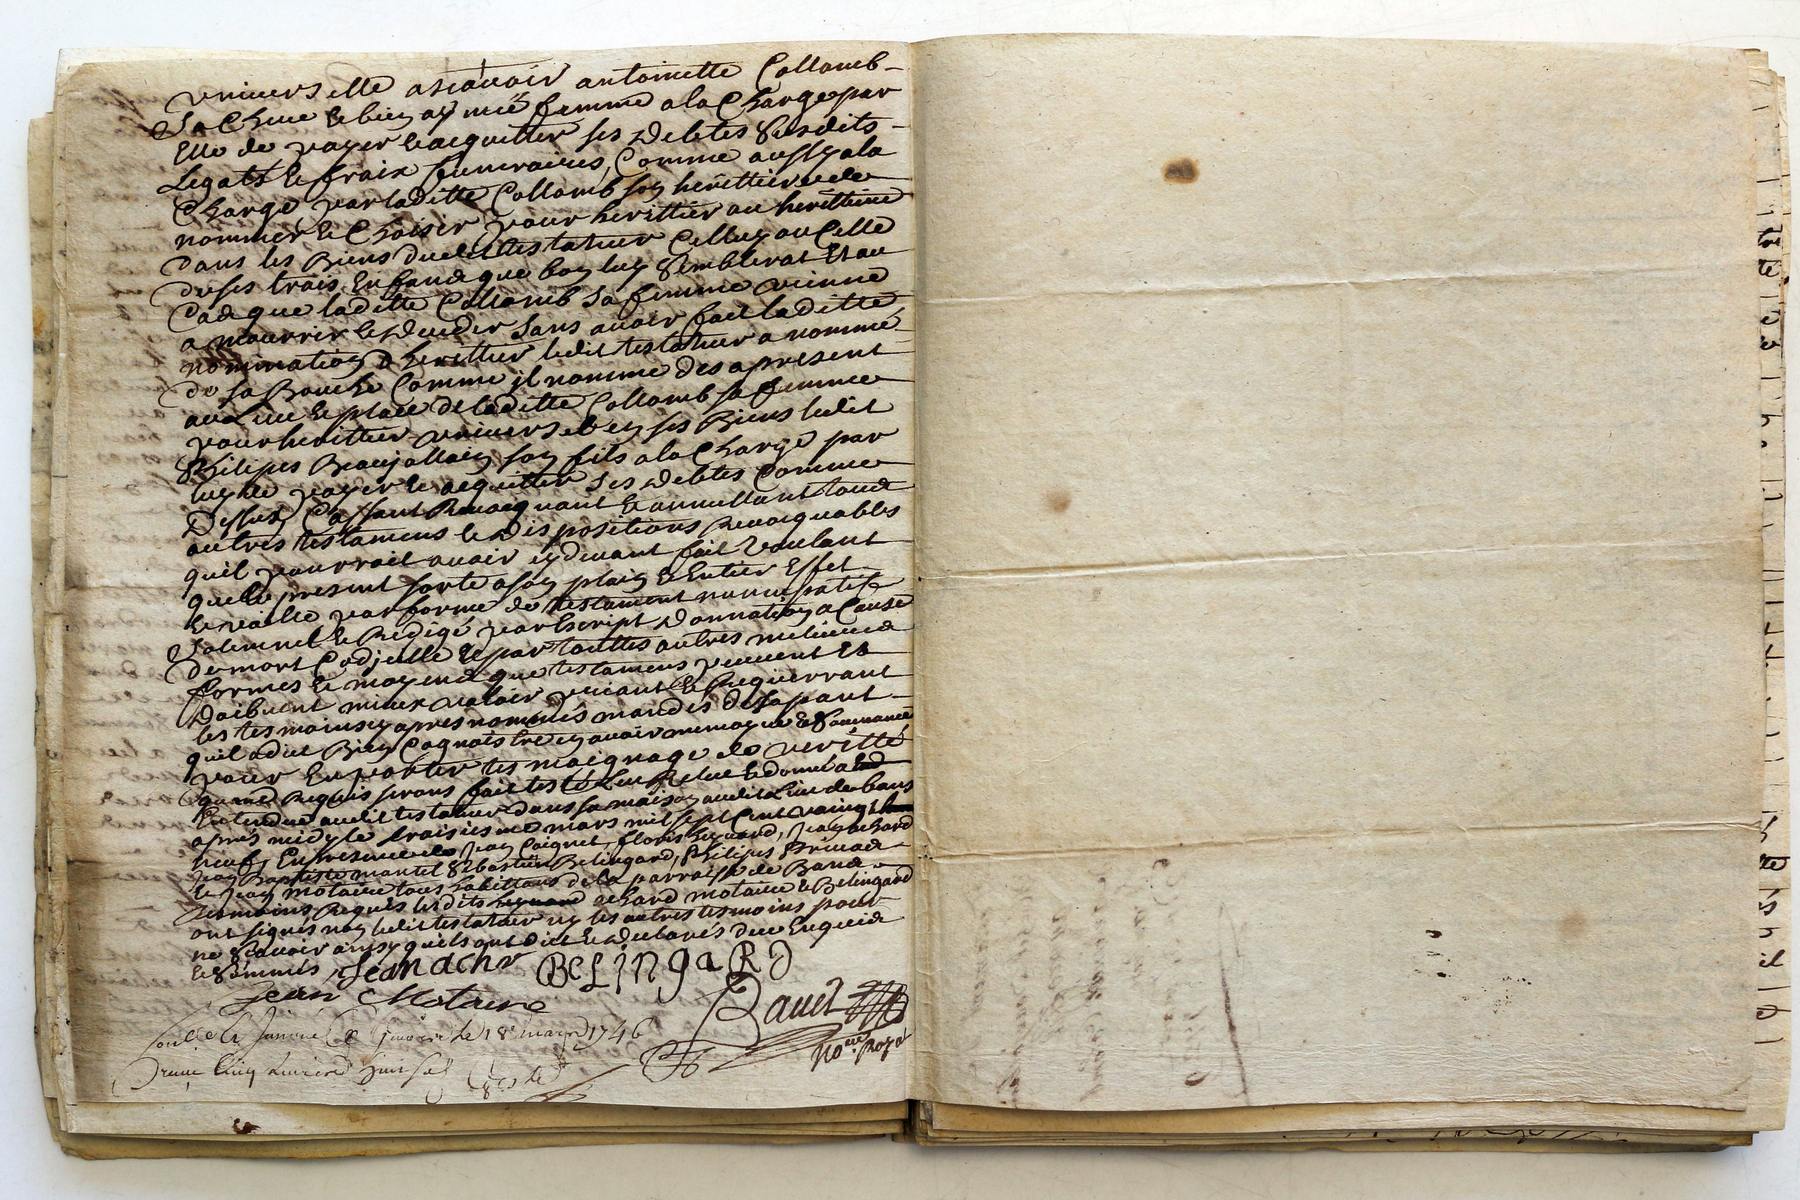 universelle ascavoir antoinette Collomb
Sa Chere & bien aymeé femme a la Charge par
Elle de payer & acquitter ses debtes Susdits
Legats & fraix funeraires, Comme aussy a la
Charge par laditte Collomb son herittiere de
nommer & Choisir pour herittier ou herittiere
dans les Biens dudit testateur Celluy ou Celle
de ses trois Enfans que bon luy Semblerat Et au
Cas que laditte Collomb Sa femme vienne
a mourrir & deceder Sans avoir fait laditte
nomination d'herittier ledit testateur a nommé
de sa Bouche Comme il nomme des a present
au Lieu & place de laditte Collomb sa femme
pour herittier universel en ses Biens ledit
Philipes Beaujollain son fils a la Charge par
luy de payer & acquitter ses debtes Comme
Dessus, Cassant Revocquant & annullant tous
autres testamens & dispositions Revocquables
quil pourroit avoir cy devant fait Voulant
que le present sorte a son plain & Entier Effet
& vaille par forme de testament nuncupatif
Solemnel & Redigé par Escript donnation a Cause
de mort Codicille & par touttes autres meilleures
formes & moyens que testamens peuvent Et
doibvent mieux valoir priant & Requerrant
les tesmoins cy apres nommés mandés de sa part
quil a dit Bien Cognoistre en avoir memoyre & Souvenance
pour En porter tesmoignage de veritté
quand Requis seront fait testé Leu Releu & donné a
Entendre audit testateur dans sa maison audit Lieu de bans
apres midy le troisieme mars mil sept Cent vaingt
neuf, En presence de Jean Coignet, floris, Jean achard
Jean Baptiste mantel Sebastien Belingard, Philipes
& Jean motaire tous habittans de la parroisse de Bans
tesmoins Requis lesdits achard motaire & Belingard
ont signés non ledit testateur ny les autres tesmoins pour
ne Scavoir ainsy quils ont dit & declarés deue Enquis
& Sommés Jean achar BELingaRD
Jean Motaire
Ravel
le 18e mars 1746
no.re Royal